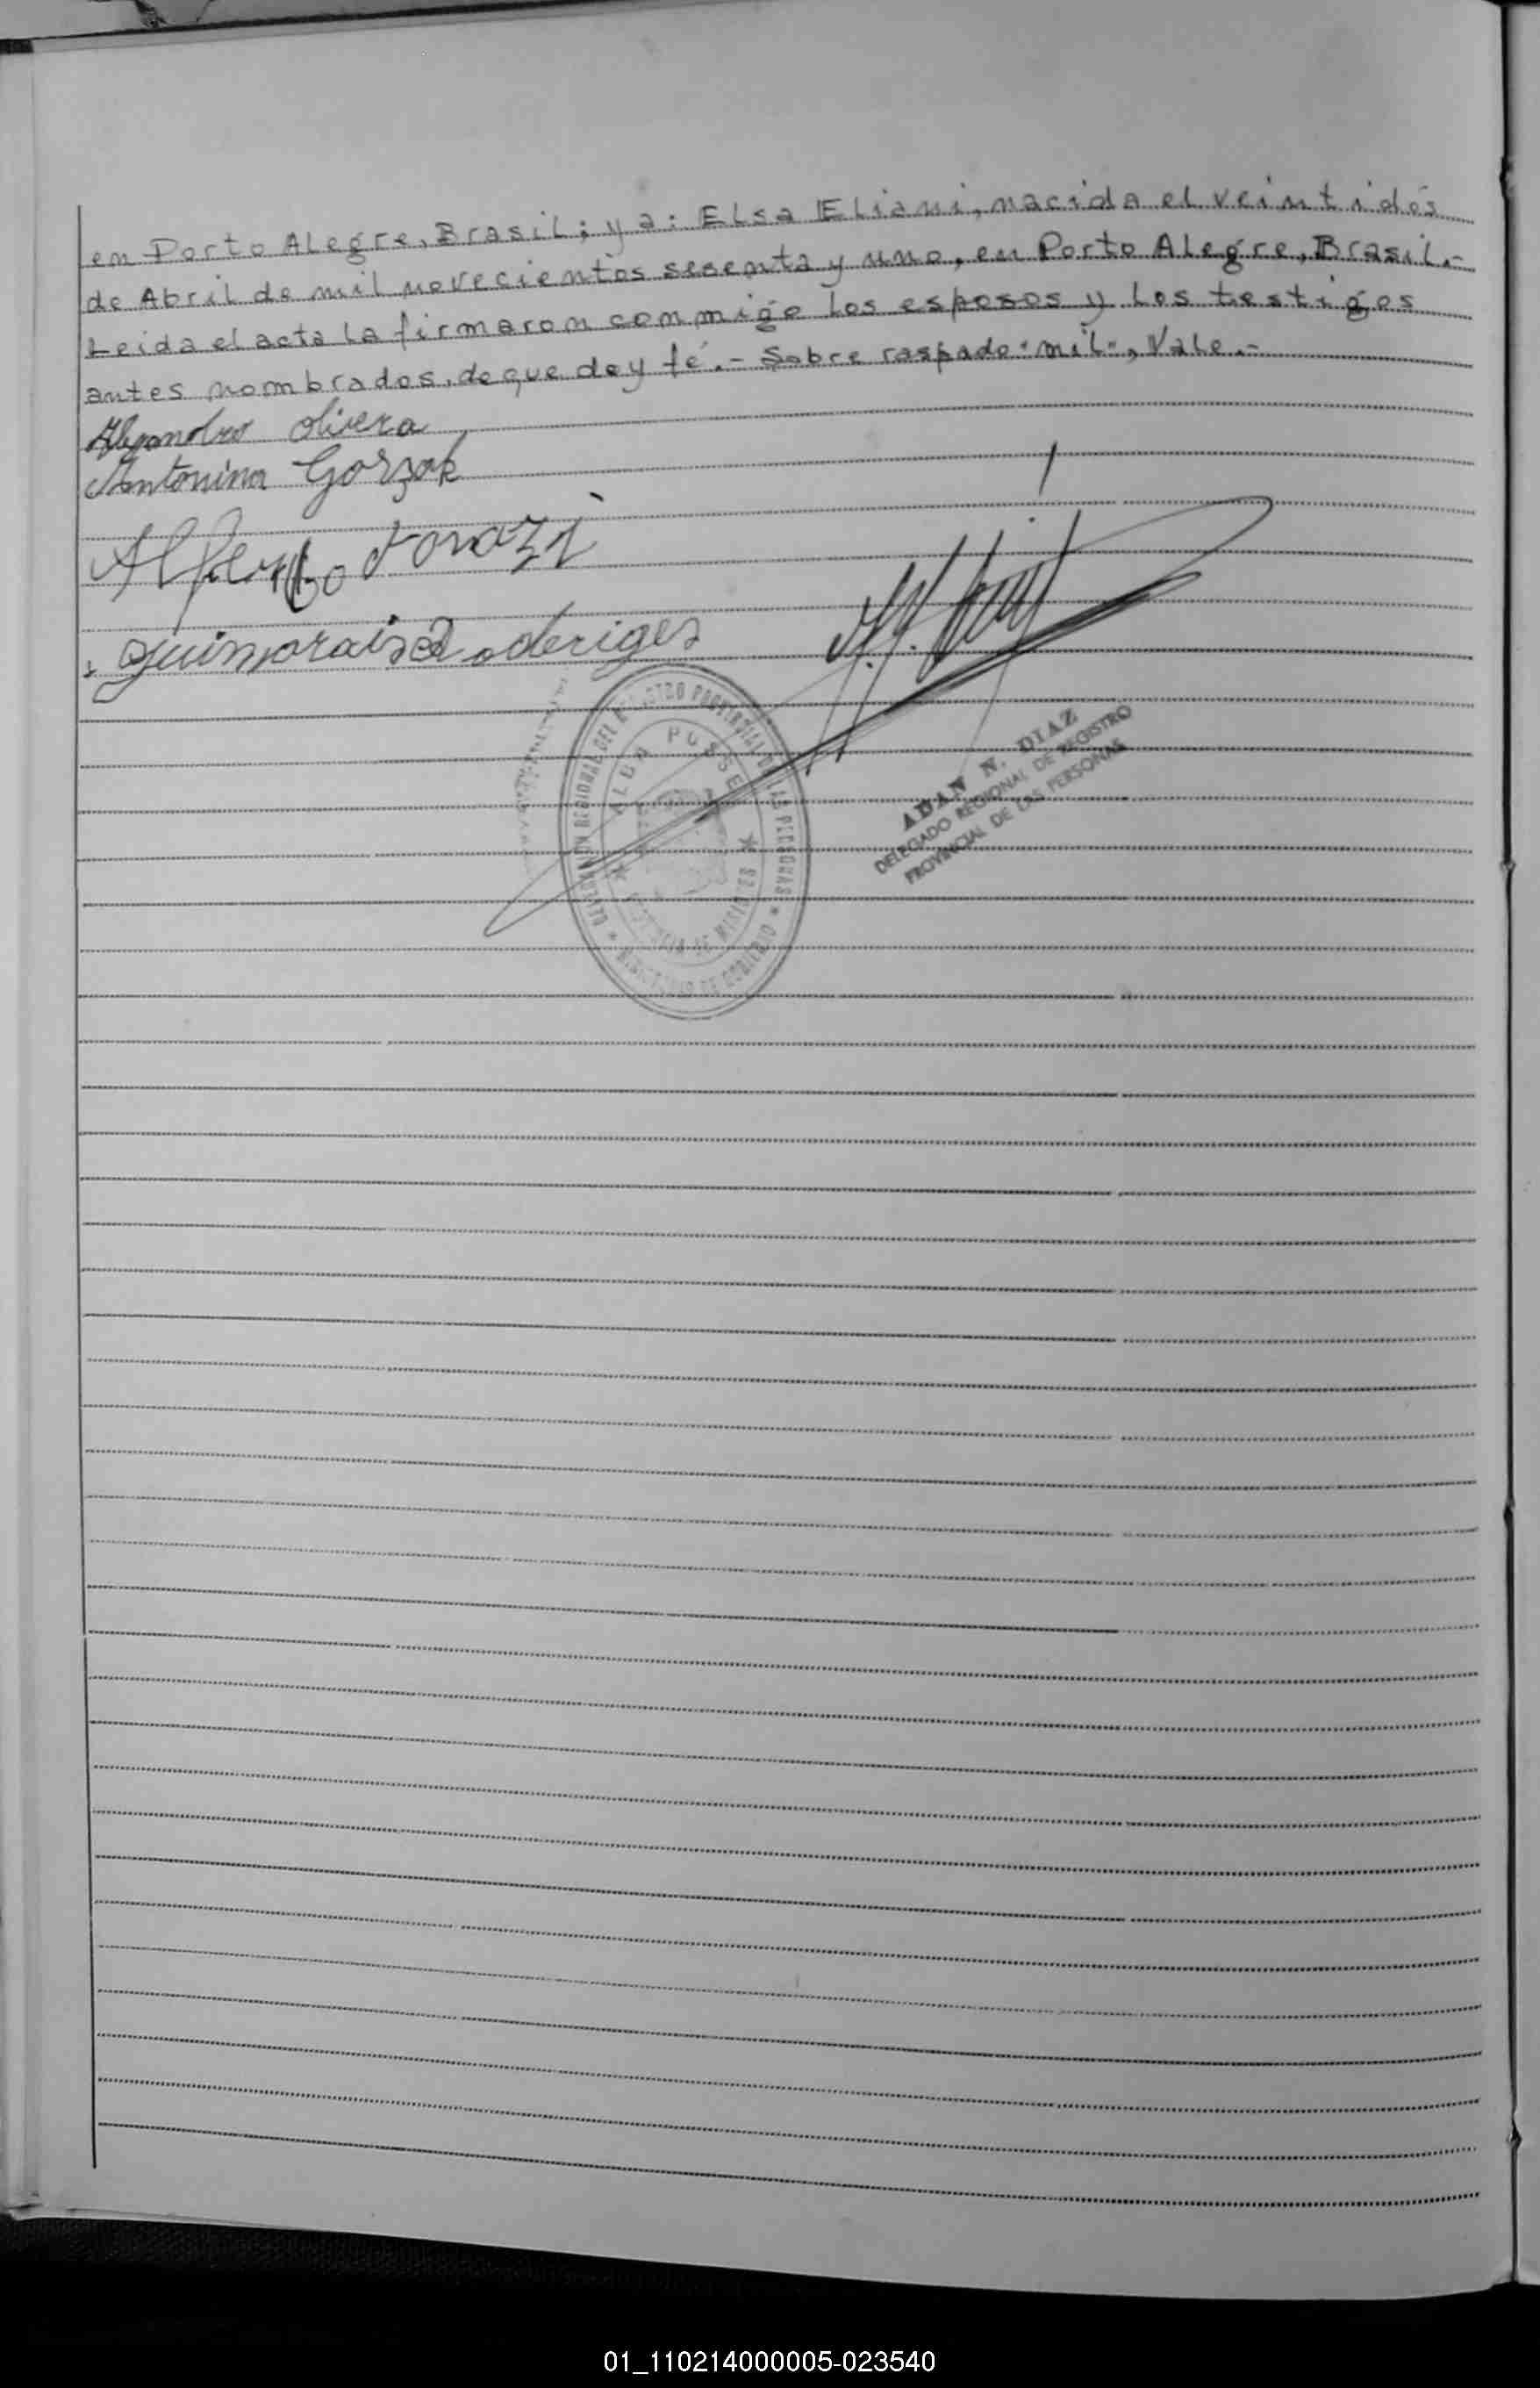 en Porto Alegre, Brasil; y a: Elsa Eliani, nacida el veintidós
de Abril de mil novecientos sesenta y uno, en Porto Alegre, Brasil.-
Leida el acta la firmaron conmigo los esposos y los testigos
antes nombrados, de que doy fé.- Sobre raspado "mil", Vale.-
Alejandro Olivera
Antonina Gorzak
DELEGACION REGIONAL DEL REGISTRO PROVINCIAL DE LAS PERSONAS * MINISTERIO DE GOBIERNO *
ALBA POSSE
* PROVINCIA DE MISIONES *
ADAN N. DIAZ
DELEGADO REGIONAL DE REGISTRO
PROVINCIAL DE LAS PERSONAS
01_110214000005-023540